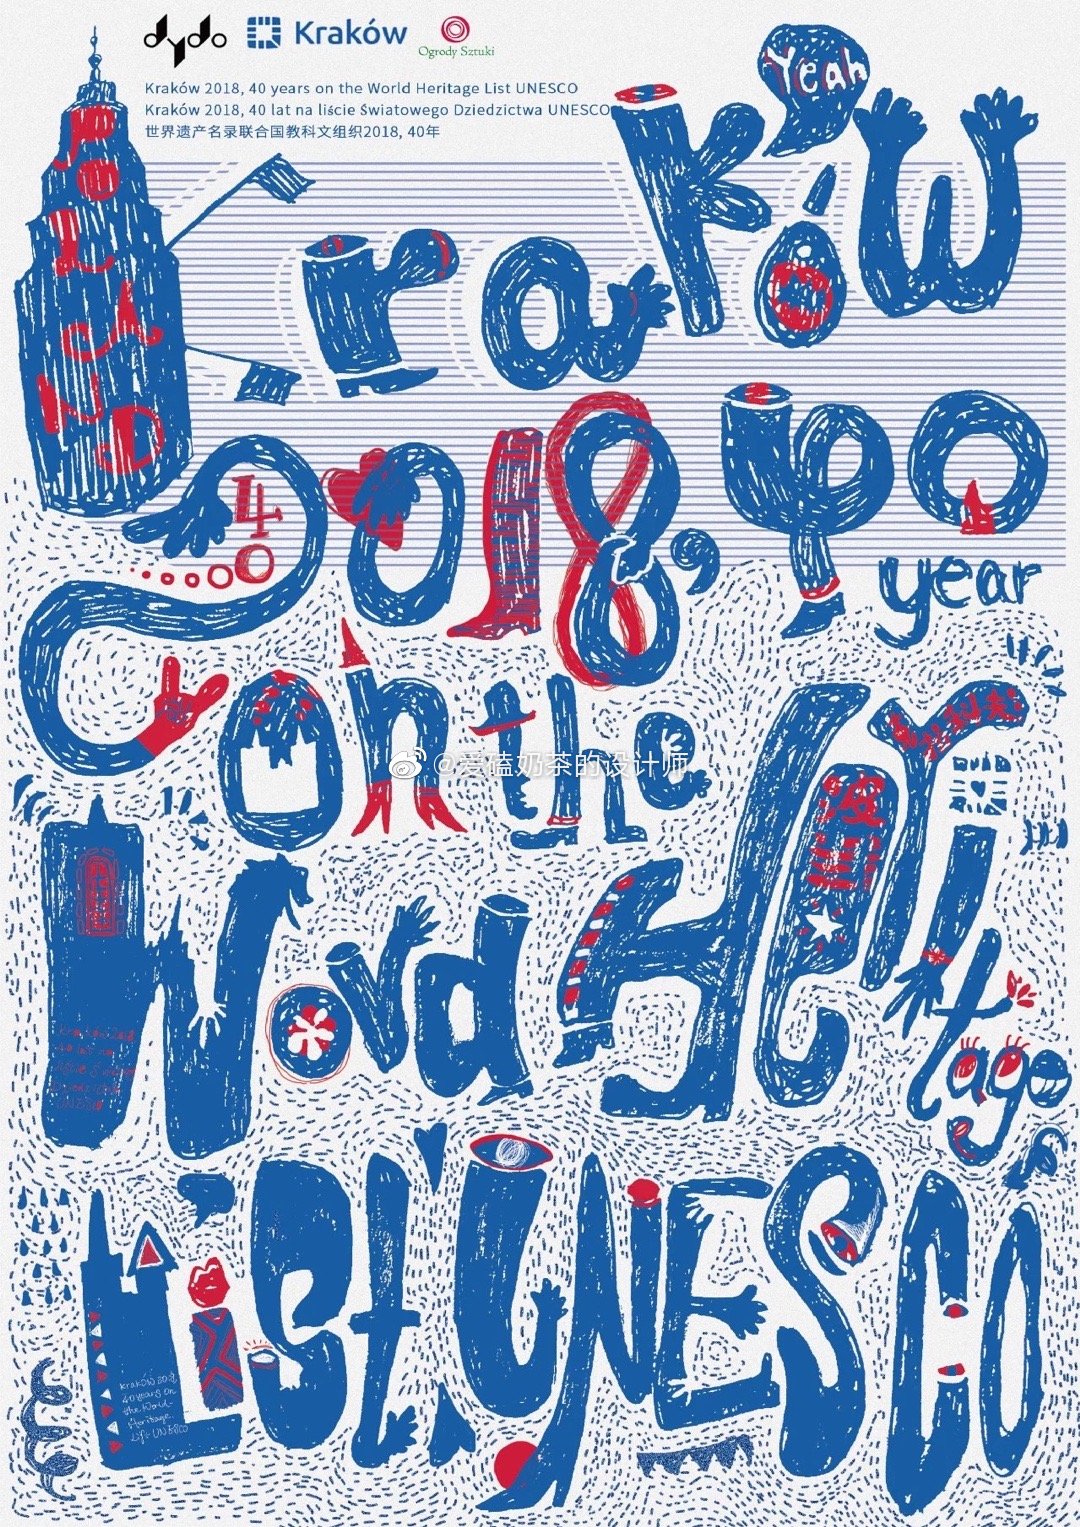 dydo
Kraków
Ogrody Sztuki
Kraków 2018, 40 years on the World Heritage List UNESCO
Kraków 2018, 40 lat na liście Światowego Dziedzictwa UNESCO
世界遗产名录联合国教科文组织2018, 40年
Yeah
Kraków
2018, 40
40
year
on the
@爱磕奶茶的设计师
World Heritage
List UNESCO
Kraków 2018,
40 years on
the World
Heritage
List UNESCO